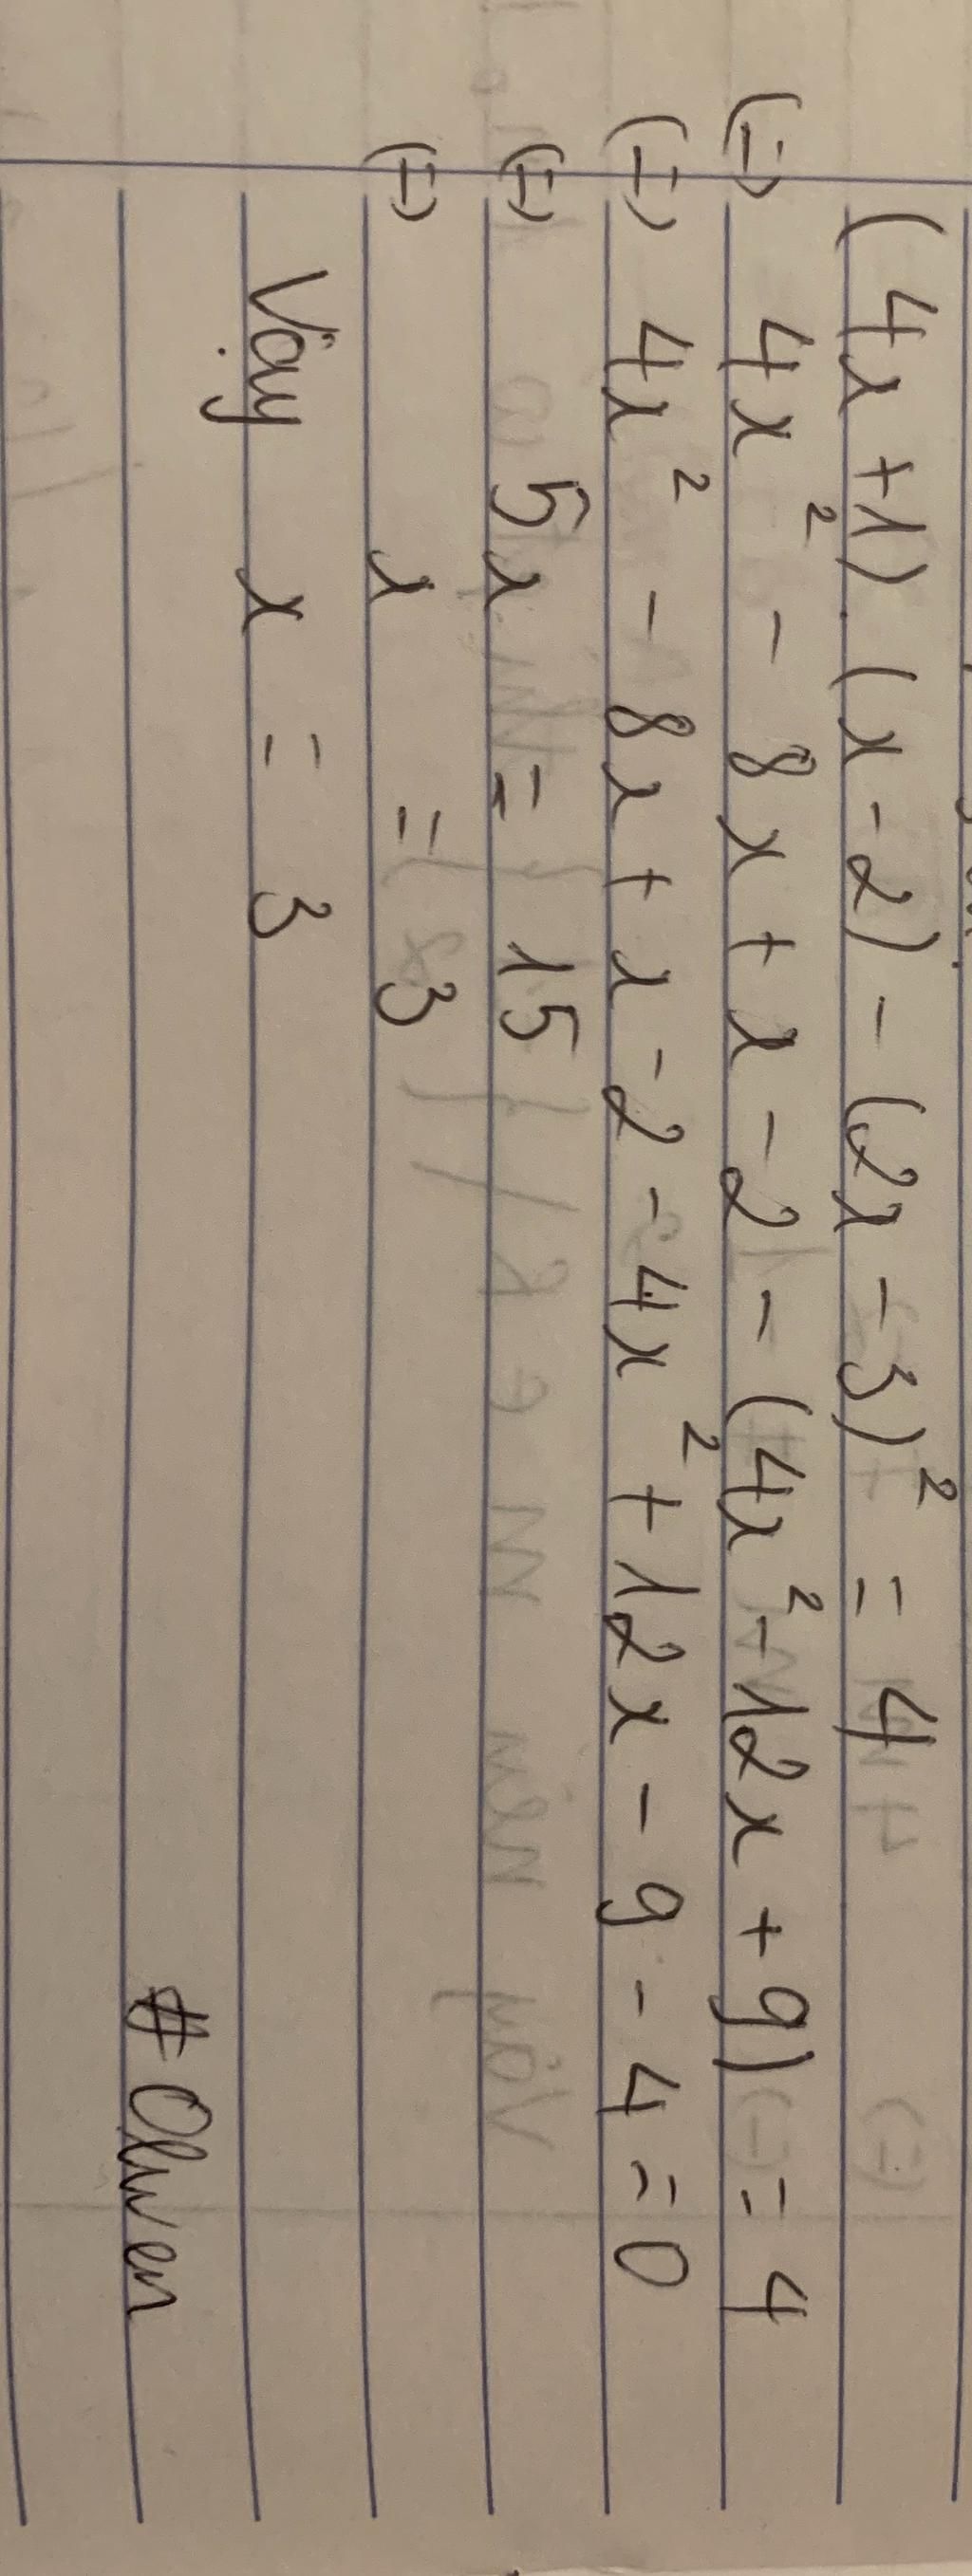 (4x +1). (x - 2) - (2x - 3)² = 4
(=) 4x² - 8x + x - 2 - (4x² - 12x + 9) = 4
(=) 4x² - 8x + x - 2 - 4x² + 12x - 9 - 4 = 0
(=) 5x = 15
(=) x = 3
Vậy x = 3
# Olwen